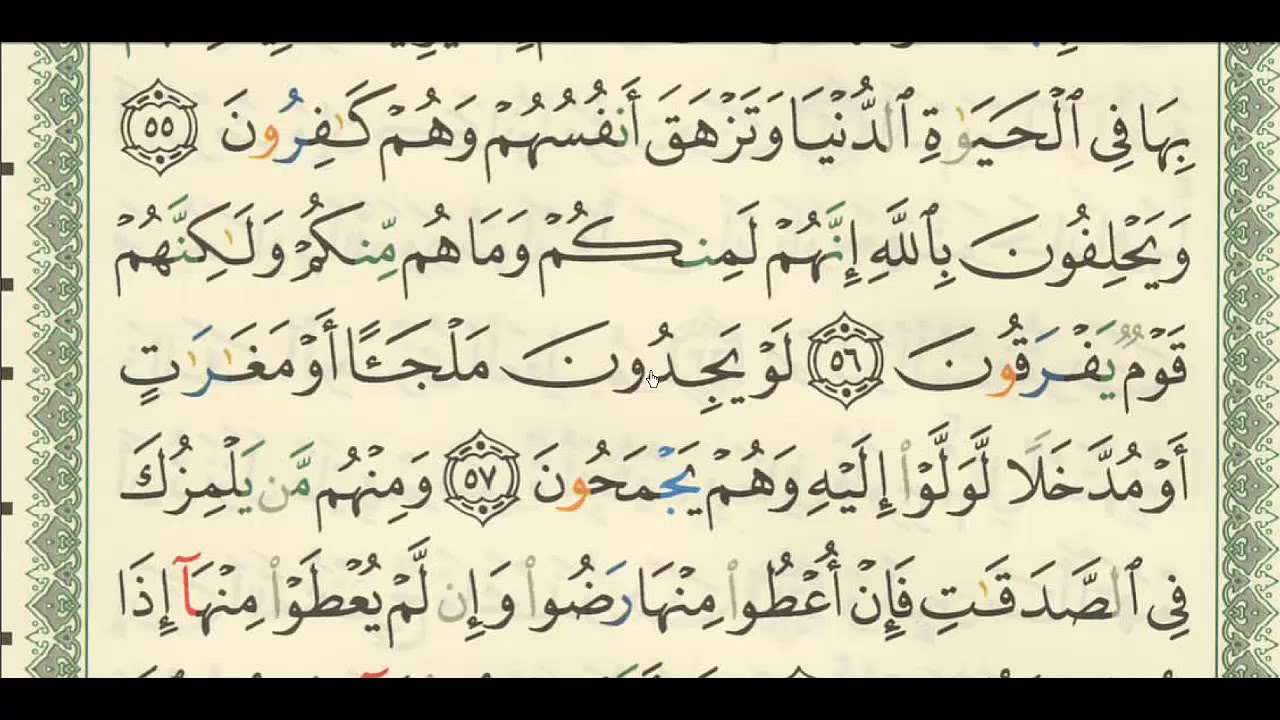 بِهَا فِى ٱلْحَيَوٰةِ ٱلدُّنْيَا وَتَزْهَقَ أَنفُسُهُمْ وَهُمْ كَـٰفِرُونَ ٥٥
وَيَحْلِفُونَ بِٱللَّهِ إِنَّهُمْ لَمِنكُمْ وَمَا هُم مِّنكُمْ وَلَـٰكِنَّهُمْ
قَوْمٌ يَفْرَقُونَ ٥٦ لَوْ يَجِدُونَ مَلْجَـًٔا أَوْ مَغَـٰرَٰتٍ
أَوْ مُدَّخَلًا لَّوَلَّوْا۟ إِلَيْهِ وَهُمْ يَجْمَحُونَ ٥٧ وَمِنْهُم مَّن يَلْمِزُكَ
فِى ٱلصَّدَقَـٰتِ فَإِنْ أُعْطُوا۟ مِنْهَا رَضُوا۟ وَإِن لَّمْ يُعْطَوْا۟ مِنْهَآ إِذَا